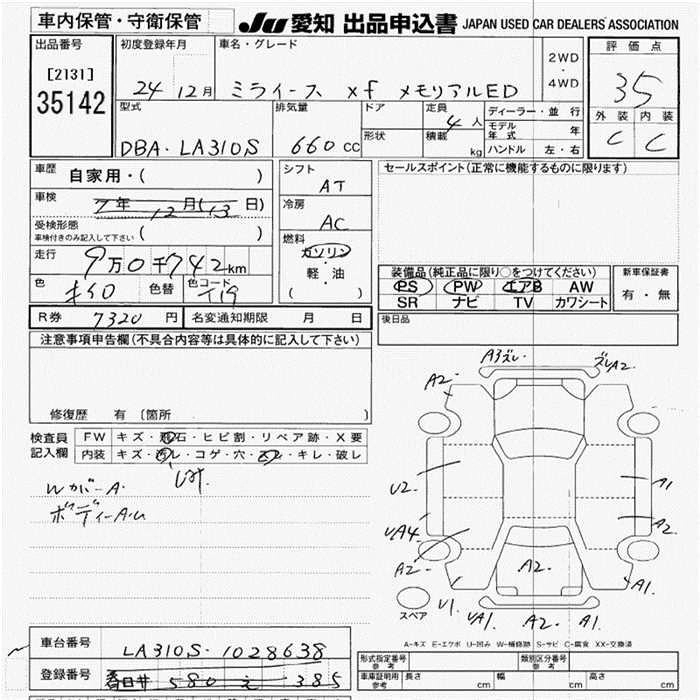 車内保管・守衛保管
JU 愛知 出品申込書 JAPAN USED CAR DEALERS' ASSOCIATION
出品番号
[2131]
35142
初度登録年月
24 12月
車名・グレード
ミライース xf メモリアルED
2WD
・
4WD
評価点
35
外装 内装
C C
型式
DBA・LA310S
排気量
660 CC
ドア
形状
定員
4 人
積載
kg
ディーラー・並行
モデル年式 年
ハンドル 左・右
車歴
自家用・( )
車検
7年 12月(13日)
受検形態
車検付きのみ記入して下さい ( )
走行
9万0千742km
色
色替
色コード
T19
シフト
AT
冷房
AC
燃料
ガソリン
軽・油
( )
セールスポイント(正常に機能するものに限ります)
装備品(純正品に限り○をつけてください)
PS PW エアB AW
SR ナビ TV カワシート
新車保証書
有・無
R券 7320 円
名変通知期限 月 日
後日品
注意事項申告欄(不具合内容等は具体的に記入して下さい)
修復歴 有 [箇所 ]
検査員
記入欄
FW キズ・飛石・ヒビ割・リペア跡・X要
内装 キズ・汚レ・コゲ・穴・スレ・キレ・破レ
Wカバー A.
ボディーA.U
A3ズレ.
ズレA2
A2
U2
A1
UA4
A2
A2
A2
U1
UA1
A2
A1
A1
スペア
A-キズ E-エクボ U-凹み W-補修跡 S-サビ C-腐食 XX-交換済
車台番号 LA310S・1028638
登録番号 春日井 580 え 385
形式指定番号
参考
類別区分番号
参考
車庫証明用
参考
長さ cm 幅 cm 高さ cm